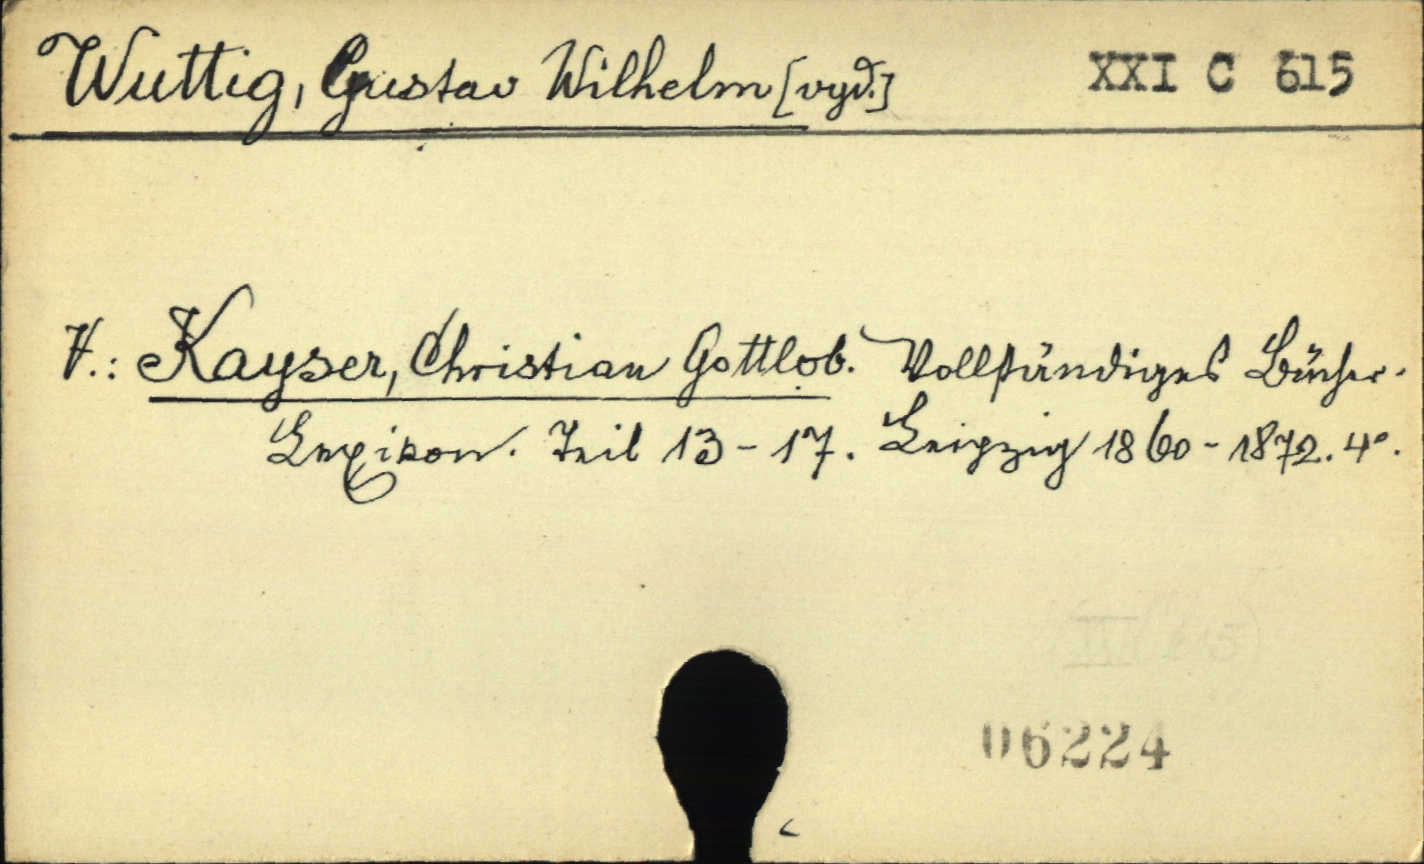 Wuttig, Gustav Wilhelm [vyd.] XXI C 615
V.: Kayser, Christian Gottlob. Vollständiges Bücher-
Lexikon. Teil 13-17. Leipzig 1860-1872. 4°.
06224